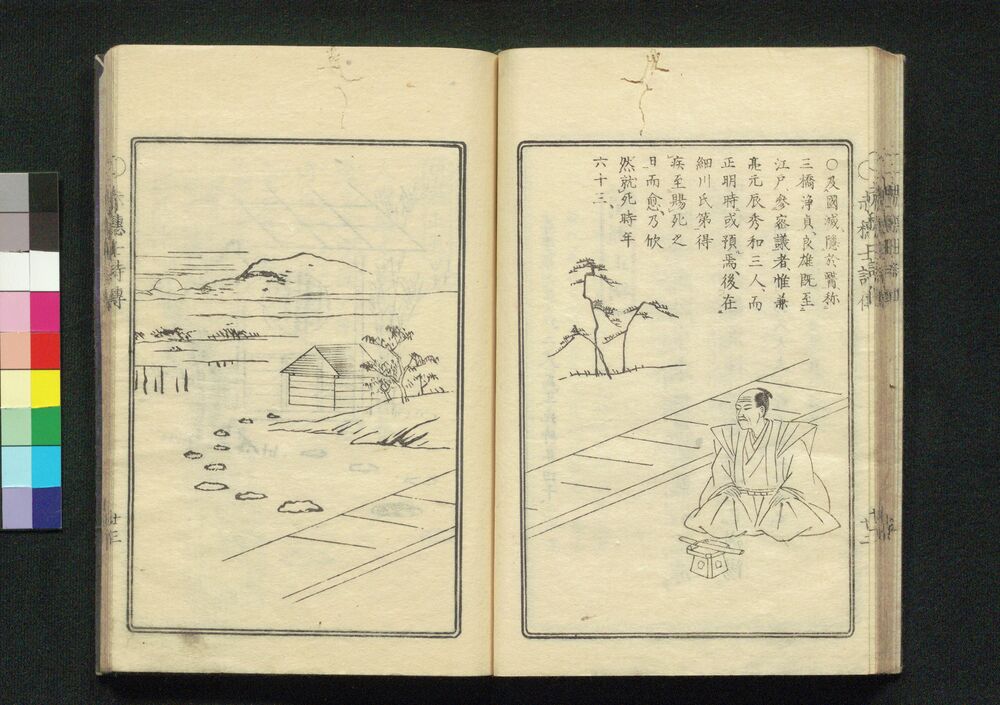 ○及國滅隱於醫称
三橋浄貞良雄既至
江戸參密議者惟兼
亮元辰秀和三人而
正明時或預焉後在
細川氏第得
疾至賜死之
日而愈乃欣
然就死時年
六十三
廿二
赤穗士詩傳
廿三